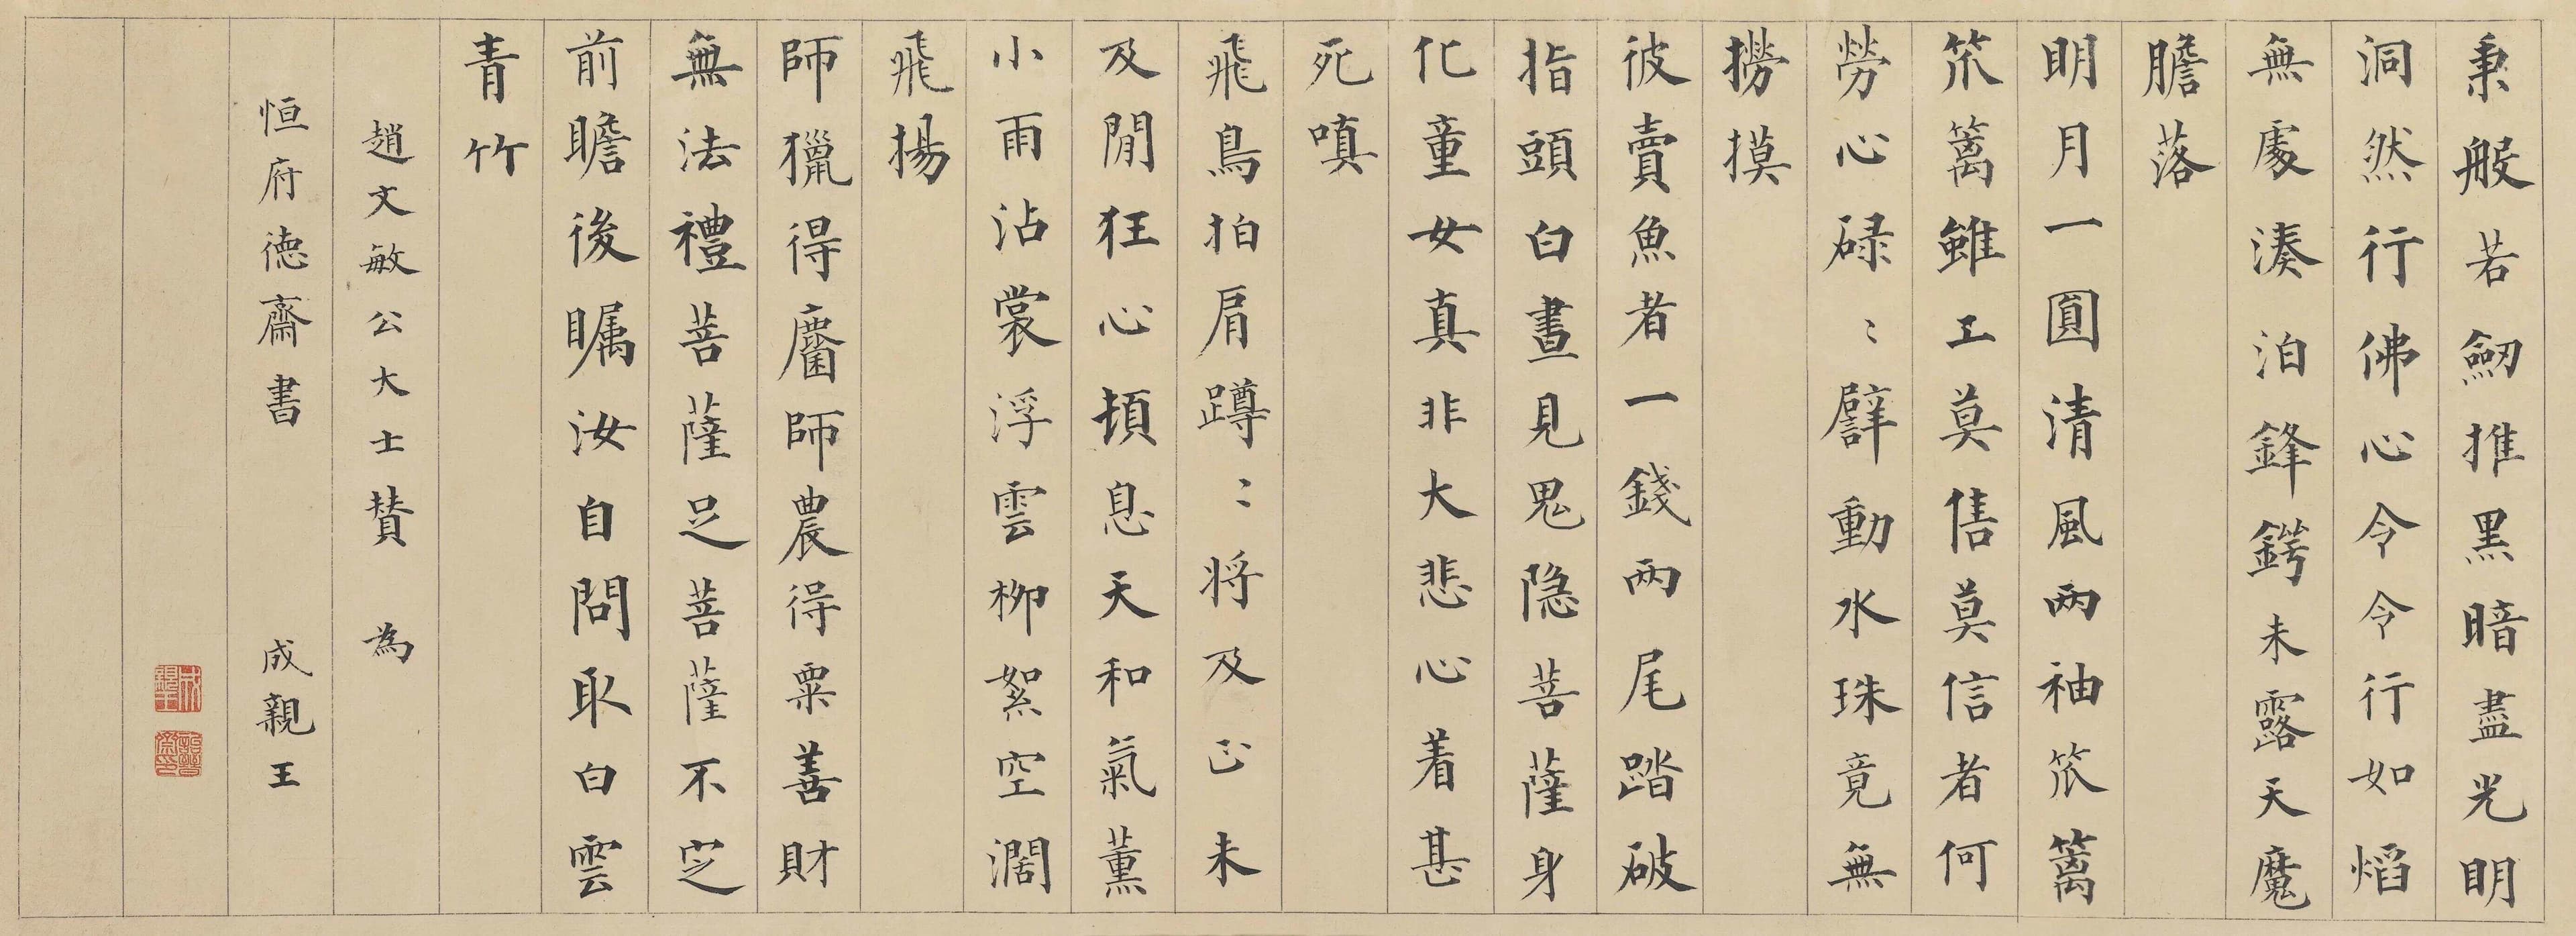 秉般若劒推黑暗盡光明
洞然行佛心令令行如熖
無處湊泊鋒鍔未露天魔
膽落
明月一圓清風兩袖笊篱
笊篱雖工莫售莫信者何
勞心碌〻擘動水珠竟無
撈摸
彼賣魚者一錢兩尾踏破
指頭白晝見鬼隐菩薩身
化童女真非大悲心着甚
死嗔
飛鳥拍肩蹲〻將及正未
及閒狂心頓息天和氣薰
小雨沾裳浮雲柳絮空濶
飛揚
師獵得麕師農得粟善財
無法禮菩薩足菩薩不定
前瞻後矚汝自問取白雲
青竹
趙文敏公大士賛 為
恒府德齋書 成親王